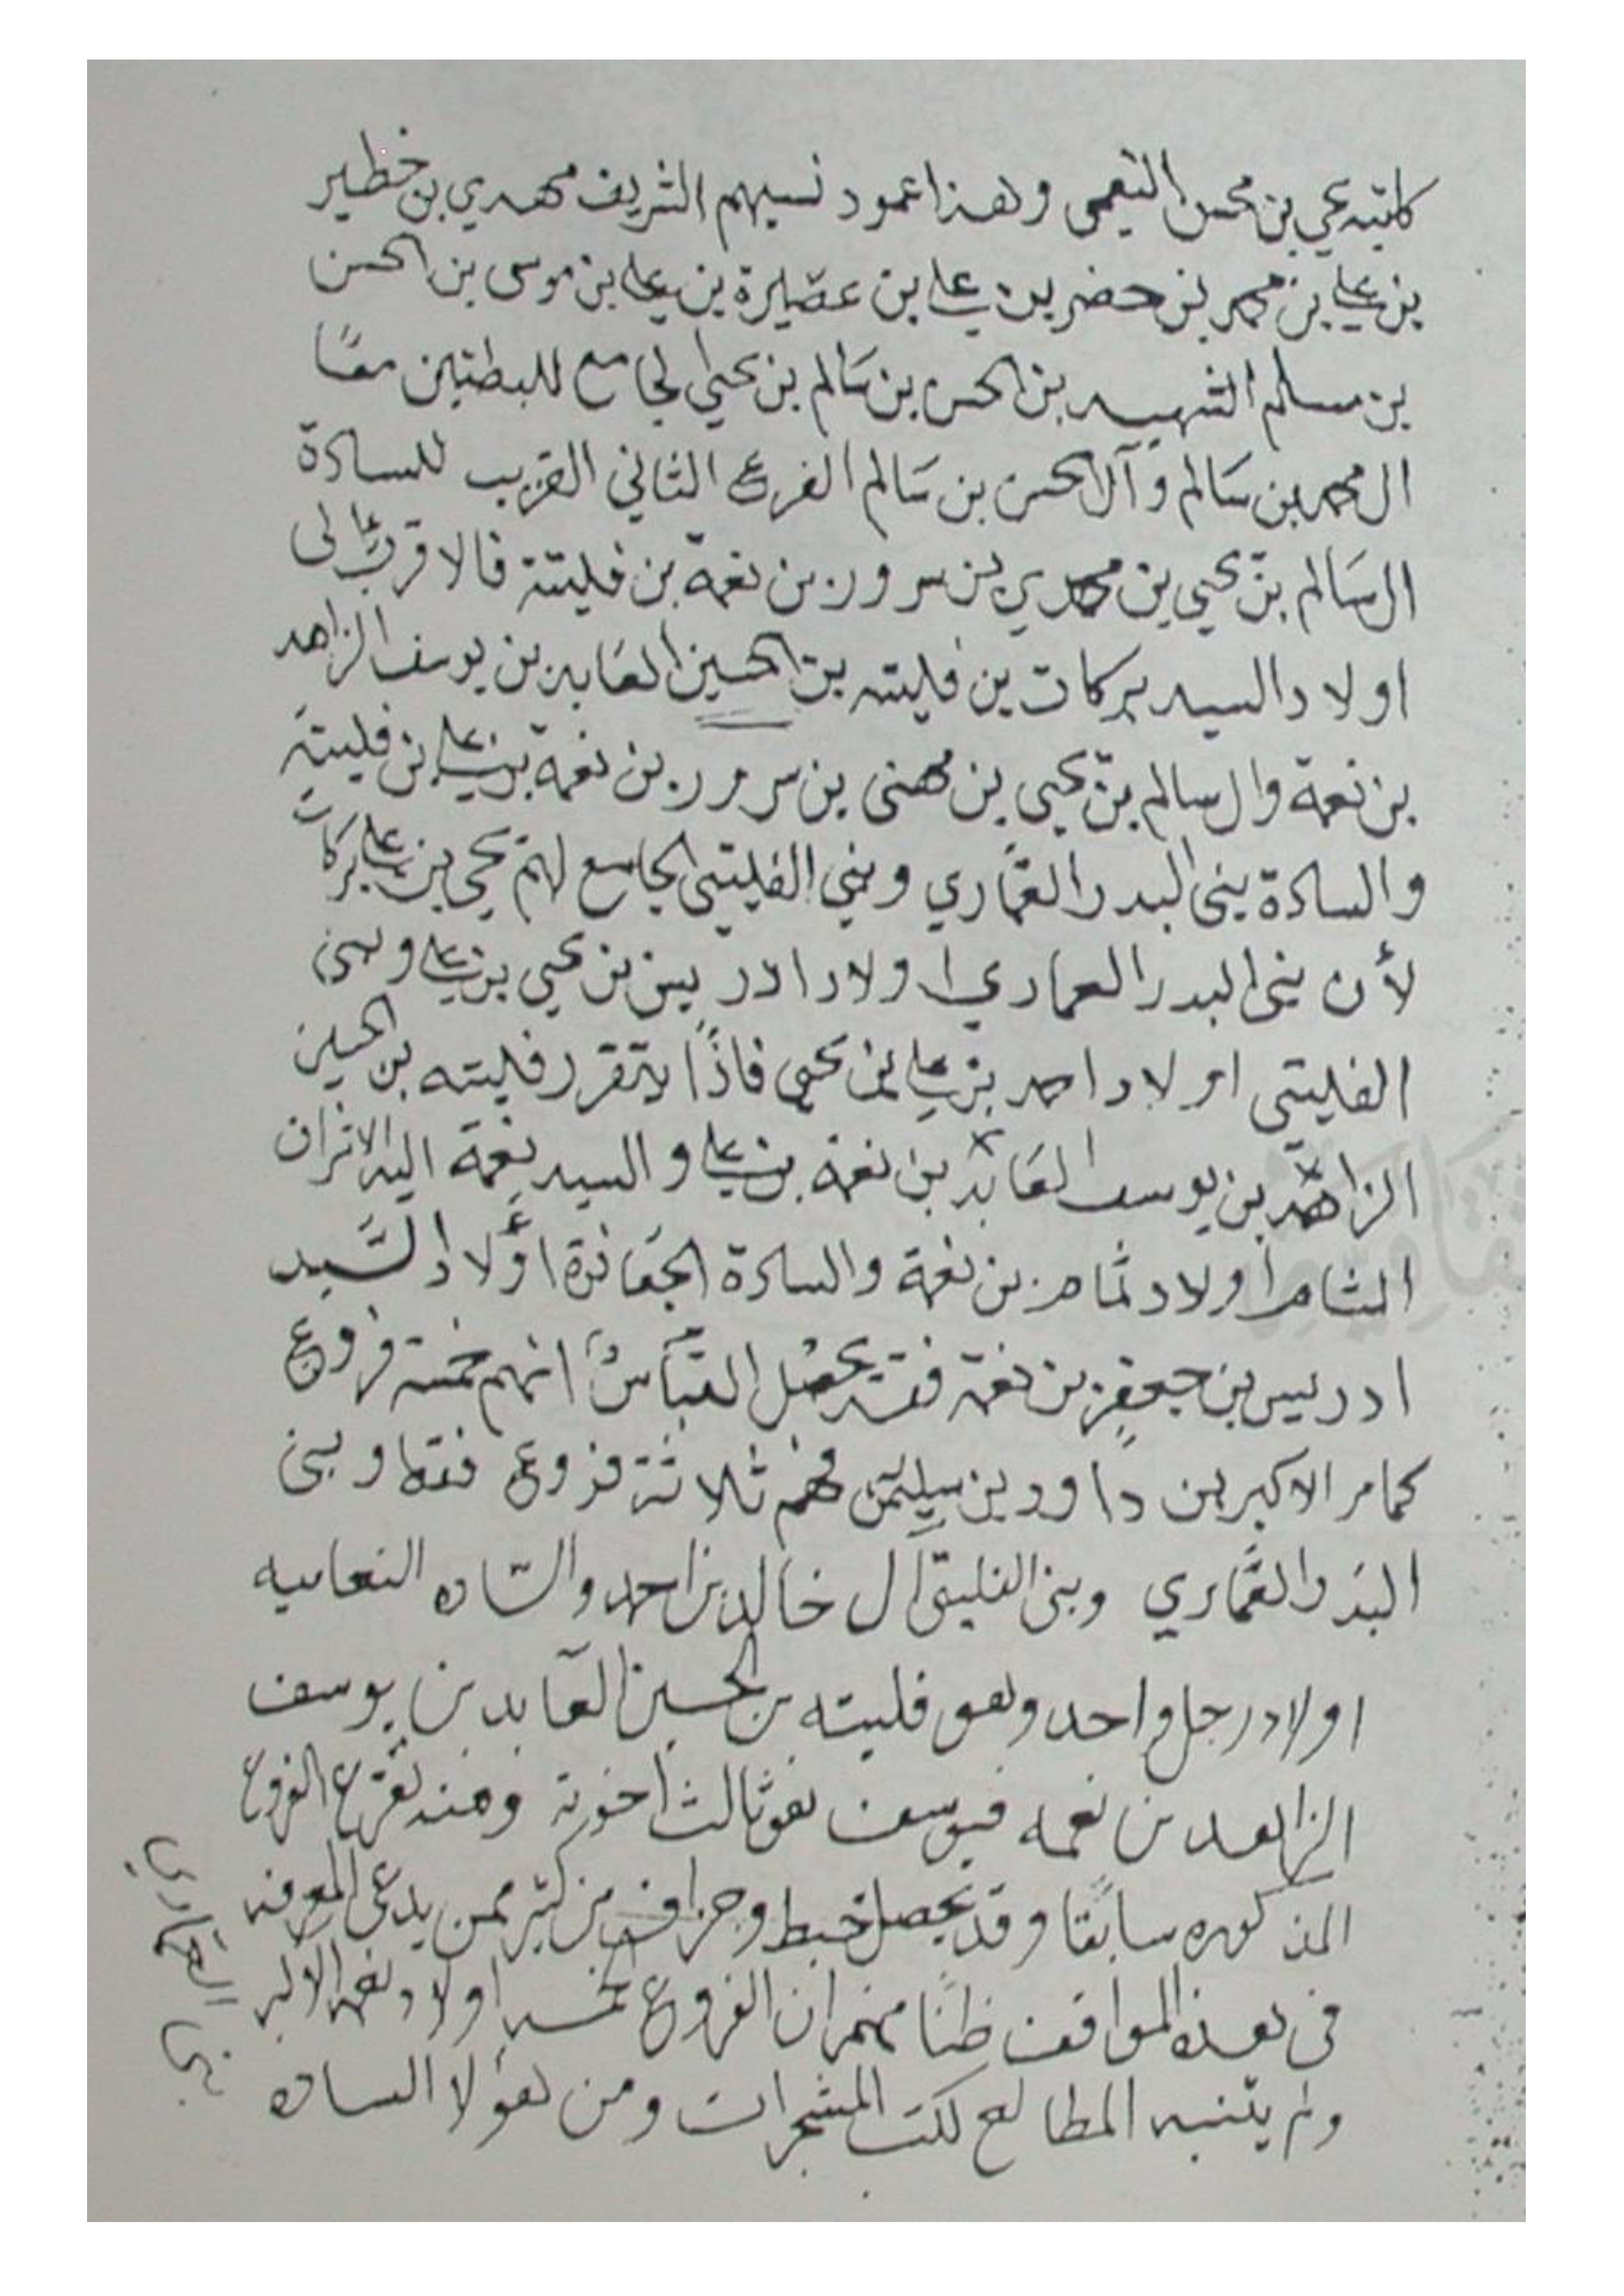 كاتبه يحيى بن محسن النعمي وهذا عمود نسبهم الشريف مهدي بن خطير
بن علي بن محمد بن حضر بن علي بن عصيرة بن علي بن موسى بن الحسن
بن مسلم الشهيد بن الحسن بن سالم بن يحيى الجامع للبطنين معًا
ال محمد بن سالم وآل الحسن بن سالم الفرع الثاني القريب للسادة
ال سالم بن يحيى بن مهدي بن سرور بن نعمة بن فليتة فالاقرب الى
اولاد السيد بركات بن فليته بن الحسين العابد بن يوسف الزاهد
بن نعمة وال سالم بن يحيى بن مهنى بن سرور بن نعمة بن علي بن فليته
والسادة بنى البدر العماري وبني الفليتي الجامع لهم يحيى بن علي بركات
لأن بنى البدر العماري اولاد ادريس بن يحيى بن علي وبنى
الفليتي اولاد احمد بن علي بن يحيى فاذًا يتقرر فليته بن الحسين
الزاهد بن يوسف العابد بن نعمة بن علي والسيد نعمة اليه الاشراف
الشام اولاد ثامر بن نعمة والسادة الجعافرة اولاد السيد
ادريس بن جعفر بن نعمة فقد يحصل القباسُ انهم خمسة فروع
كمامر الاكبر بن داوود بن سليمن فهم ثلاثة فروع فقط وبنى
البدر العماري وبنى الفليتى آل خالد بن احمد والساده النعاميه
اولاد رجل واحد وهو فليته بن الحسين العابد بن يوسف
الزاهد بن نعمه فيوسف هو ثالث اخوته ومنه تفرع الفروع
المذكوره سابقا وقد يحصل خبط وجزاف من كثير ممن يدعى المعرفه
فى هذه المواقف ظنًا منهم ان الفروع الخمسه اولاد نعمه الاكبر
ولم يتنبه المطالع لكتب المشجرات ومن هؤلا الساده
بني العماري